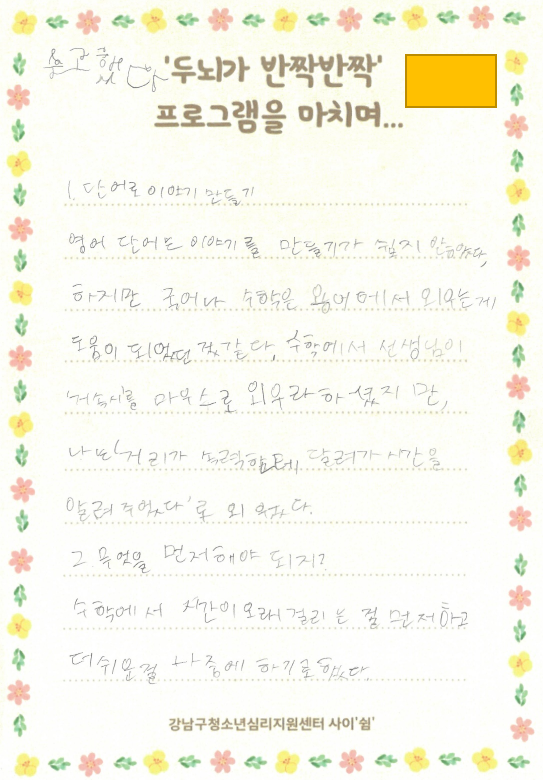 '두뇌가 반짝반짝'
프로그램을 마치며...
1. 단어로 이야기 만들기
영어 단어도 이야기를 만들기가 쉽지 않았다,
하지만 국어나 수학을 용어에서 외우는게
도움이 되었던 것같다, 수학에서 선생님이
'거속시'를 마우스로 외우라하셨지 만,
나는 '거리가 속력한테 달려가 시간을
알려 주었다'로 외웠다.
2. 무엇을 먼저해야 되지?
수학에서 시간이오래걸리는 걸 먼저하고
더쉬운걸 나중에 하기로했다.
강남구청소년심리지원센터 사이'쉼'